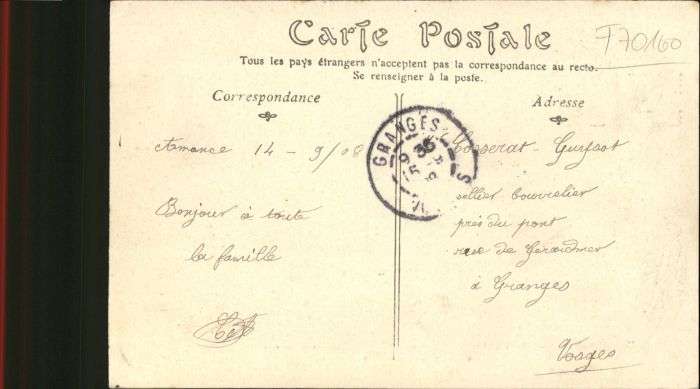 Carte Postale
F70160
Tous les pays étrangers n'acceptent pas la correspondance au recto.
Se renseigner à la poste.
Correspondance
Adresse
Amance 14 - 9/08
Bonjour à toute
la famille
GRANGES
Cosserat
sellier bourrelier
près du pont
rue de Gerardmer
à Granges
Vosges